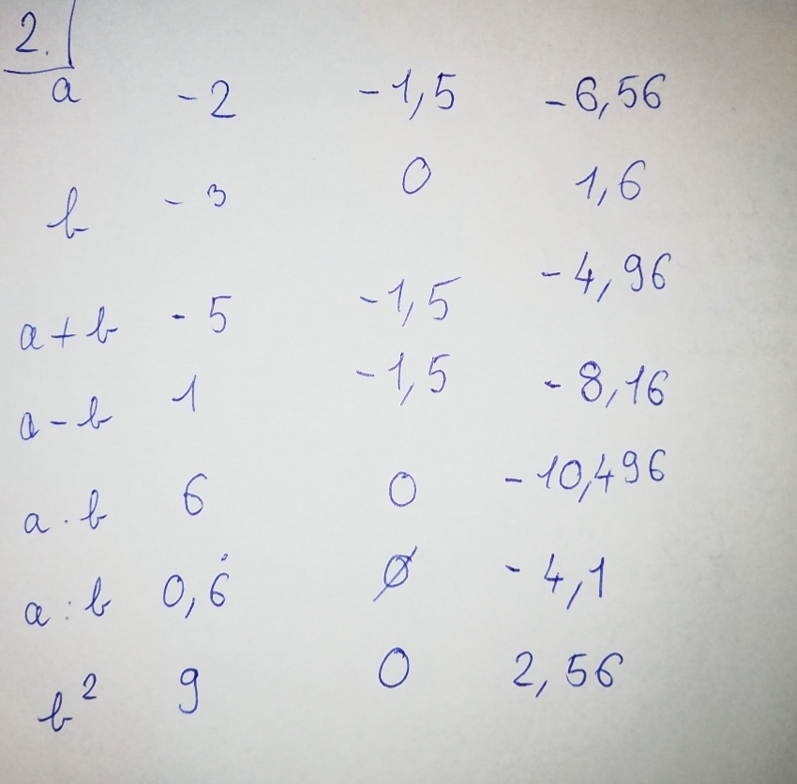 2.
a -2 -1,5 -6,56
b -3 0 1,6
a+b -5 -1,5 -4,96
a-b 1 -1,5 -8,16
a·b 6 0 -10,496
a:b 0,6̇ Ø -4,1
b² 9 0 2,56